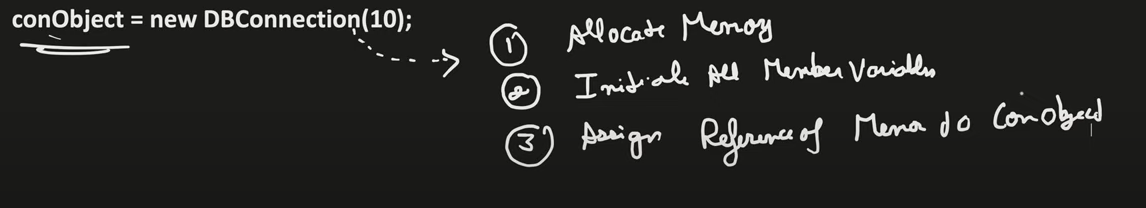 conObject = new DBConnection(10);
1 Allocate Memory
2 Initiale All Member Variables
3 Assign Reference of Memor to ConObject